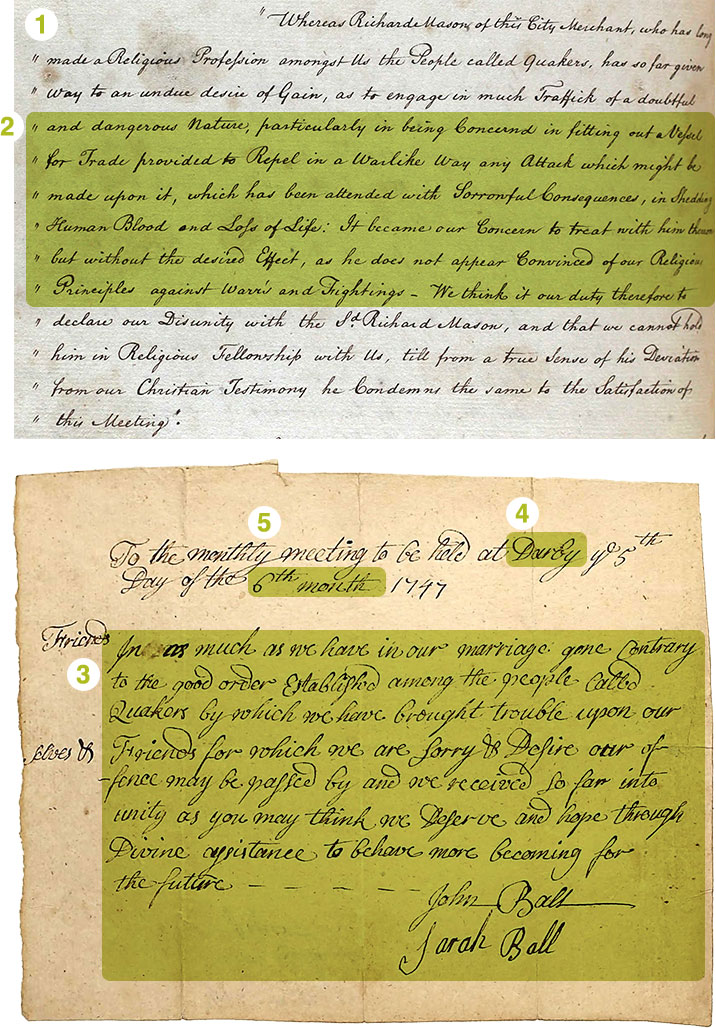 1
" Whereas Richard Mason, of this City Merchant, who has long
" made a Religious Profession amongst Us the People called Quakers, has so far given
" Way to an undue desire of Gain, as to engage in much Traffick of a doubtful
2
" and dangerous Nature, particularly in being Concernd in fitting out a Vessel
" for Trade provided to Repel in a Warlike Way any Attack which might be
" made upon it, which has been attended with Sorrowful Consequences, in Shedding
" Human Blood and Loss of Life: It became our Concern to treat with him thereon
" but without the desired Effect, as he does not appear Convinced of our Religious
" Principles against Warrs and Fightings - We think it our duty therefore to
" declare our Disunity with the Sd. Richard Mason, and that we cannot hold
" him in Religious Fellowship with Us, till from a true Sense of his Deviation
" from our Christian Testimony he Condemns the same to the Satisfaction of
" this Meeting".
5
4
To the monthly meeting to be held at Darby ye 5th
Day of the 6th month 1747
Friends
3
In as much as we have in our marriage gone Contrary
to the good order Established among the people Called
Quakers by which we have brought trouble upon our
selves & Friends for which we are sorry & Desire our of-
-fence may be passed by and we received so far into
unity as you may think we Deserve and hope through
Divine assistance to behave more becoming for
the future - - - - -
John Ball
Sarah Ball